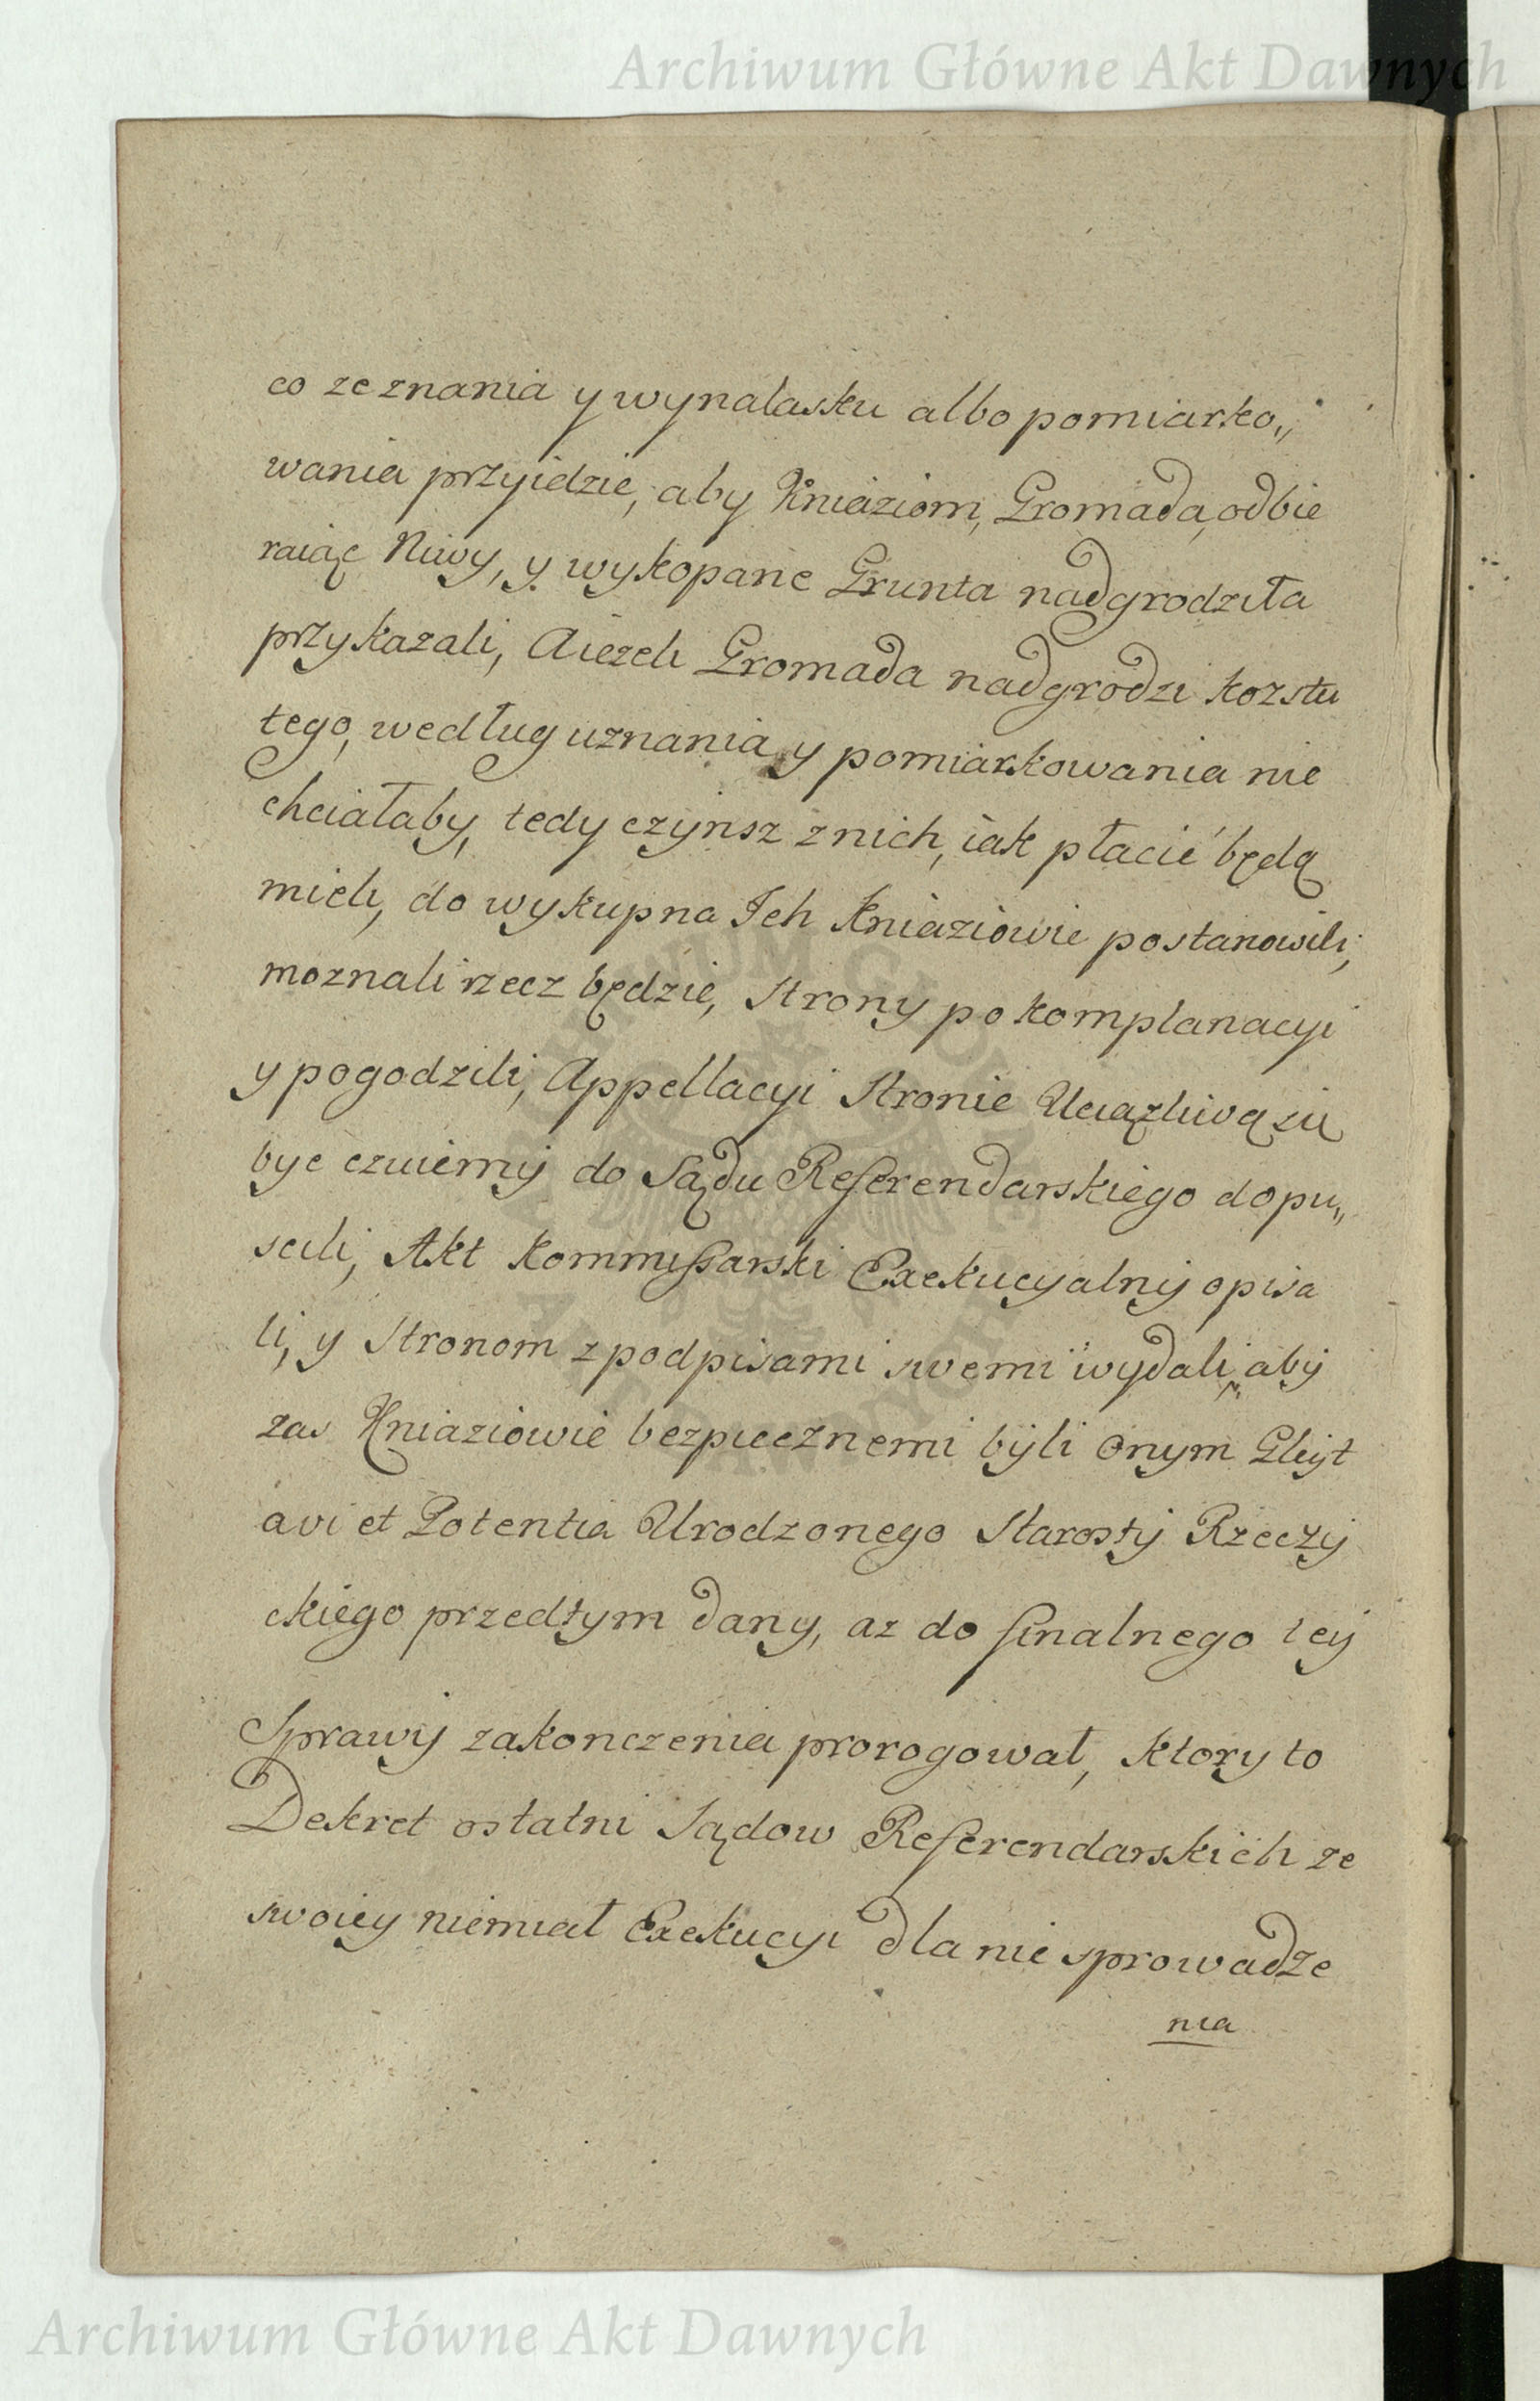 Archiwum Główne Akt Dawnych
co ze znania y wynalasku albo pomiarko„
wania przyidzie, aby Kniaziom, Gromada, odbie
raiąc Niwy, y wykopane Grunta nadgrodziła
przykazali, A iezeli Gromada nadgrodzi kosztu
tego, według uznania y pomiarkowania nie
chciałaby, tedy czynsz z nich, iak płacić będą
mieli, do wykupna Ich Kniaziowie postanowili,
moznali rzecz będzie, Strony po komplanacyi
y pogodzili, Appellacyi Stronie Uciązliwą się
byc czuiemy do Sądu Referendarskiego dopu„
scili, Akt Kommissarski Exekucyalny opisa
li, y Stronom z podpisami swemi wydali, aby
zas Kniaziowie bezpiecznemi byli onym Gleyt
avi et Potentia Urodzonego Starosty Rzeczy
ckiego przedtym dany, az do finalnego tey
Sprawy zakonczenia prorogował, ktory to
Dekret ostatni Sądow Referendarskich ze
swoiey niemiał Exekucyi dla nie sprowadze
nia
Archiwum Główne Akt Dawnych